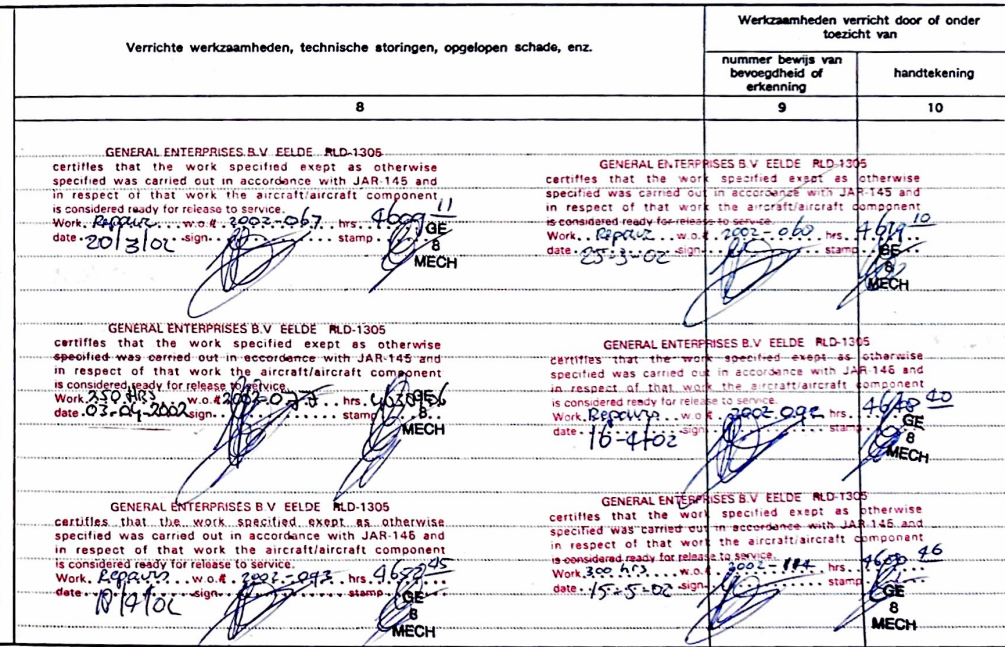 Verrichte werkzaamheden, technische storingen, opgelopen schade, enz.
Werkzaamheden verricht door of onder
toezicht van
nummer bewijs van
bevoegdheid of
erkenning
handtekening
8
9
10
GENERAL ENTERPRISES B.V EELDE RLD-1305
certifies that the work specified exept as otherwise
specified was carried out in accordance with JAR-145 and
in respect of that work the aircraft/aircraft component
is considered ready for release to service.
Work. Repairs w.o.# 2002-067 hrs. 4609 11
date 20/3/02 sign. stamp
GE
8
MECH
GENERAL ENTERPRISES B.V EELDE RLD-1305
certifies that the work specified exept as otherwise
specified was carried out in accordance with JAR-145 and
in respect of that work the aircraft/aircraft component
is considered ready for release to service.
Work. Repair w.o.# 2002-060 hrs. 10
date 25-3-02 sign. stamp
GE
8
MECH
GENERAL ENTERPRISES B.V EELDE RLD-1305
certifies that the work specified exept as otherwise
specified was carried out in accordance with JAR-145 and
in respect of that work the aircraft/aircraft component
is considered ready for release to service.
Work. 250 HRS w.o.# 2002-077 hrs.
date 03-04-2002 sign. stamp
GE
8
MECH
GENERAL ENTERPRISES B.V EELDE RLD-1305
certifies that the work specified exept as otherwise
specified was carried out in accordance with JAR-145 and
in respect of that work the aircraft/aircraft component
is considered ready for release to service.
Work. Repairs w.o.# 2002-092 hrs. 4648 40
date 16-4/02 sign. stamp
GE
8
MECH
GENERAL ENTERPRISES B.V EELDE RLD-1305
certifies that the work specified exept as otherwise
specified was carried out in accordance with JAR-145 and
in respect of that work the aircraft/aircraft component
is considered ready for release to service.
Work. Repairs w.o.# 2002-093 hrs. 4652 45
date 18/4/02 sign. stamp
GE
8
MECH
GENERAL ENTERPRISES B.V EELDE RLD-1305
certifies that the work specified exept as otherwise
specified was carried out in accordance with JAR-145 and
in respect of that work the aircraft/aircraft component
is considered ready for release to service.
Work 300 hrs w.o.# 2002-114 hrs. 46
date 15-5-02 sign. stamp
GE
8
MECH